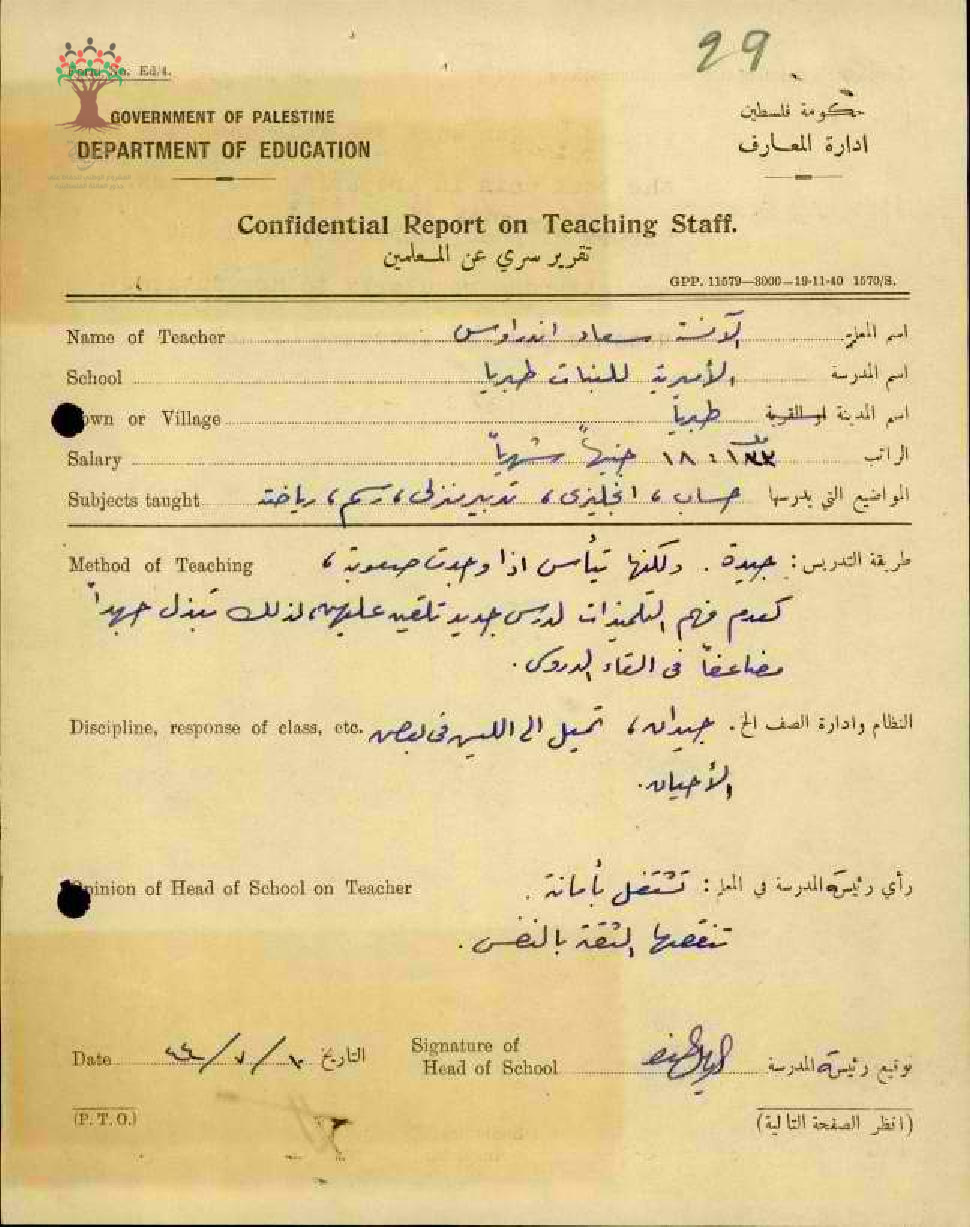 29
Form No. Ed/4.
GOVERNMENT OF PALESTINE
DEPARTMENT OF EDUCATION
حكومة فلسطين
ادارة المعارف
Confidential Report on Teaching Staff.
تقرير سري عن المعلمين
GPP. 11579—3000—19-11-40 1570/S.
Name of Teacher الآنسة سعاد اندراوس اسم المعلم
School الأميرية للبنات طبريا اسم المدرسة
Town or Village طبريا اسم المدينة او القرية
Salary جنيهاً شهرياً الراتب
Subjects taught حساب، انجليزى، تدبير منزلى، رسم، رياضة المواضيع التي يدرسها
Method of Teaching طريقة التدريس: جيدة. ولكنها تيأس اذا وجدت صعوبة،
كعدم فهم التلميذات لدرس جديد تلقيه عليهن، لذلك تبذل جهداً
مضاعفاً فى القاء الدروس.
Discipline, response of class, etc. النظام وادارة الصف الخ. جيدان، تميل الى اللين فى بعض
الأحيان.
Opinion of Head of School on Teacher رأي رئيسة المدرسة في المعلم: تشتغل بأمانة.
تنقصها الثقة بالنفس.
Date التاريخ Signature of
Head of School توقيع رئيسة المدرسة
(P. T. O.) (انظر الصفحة التالية)